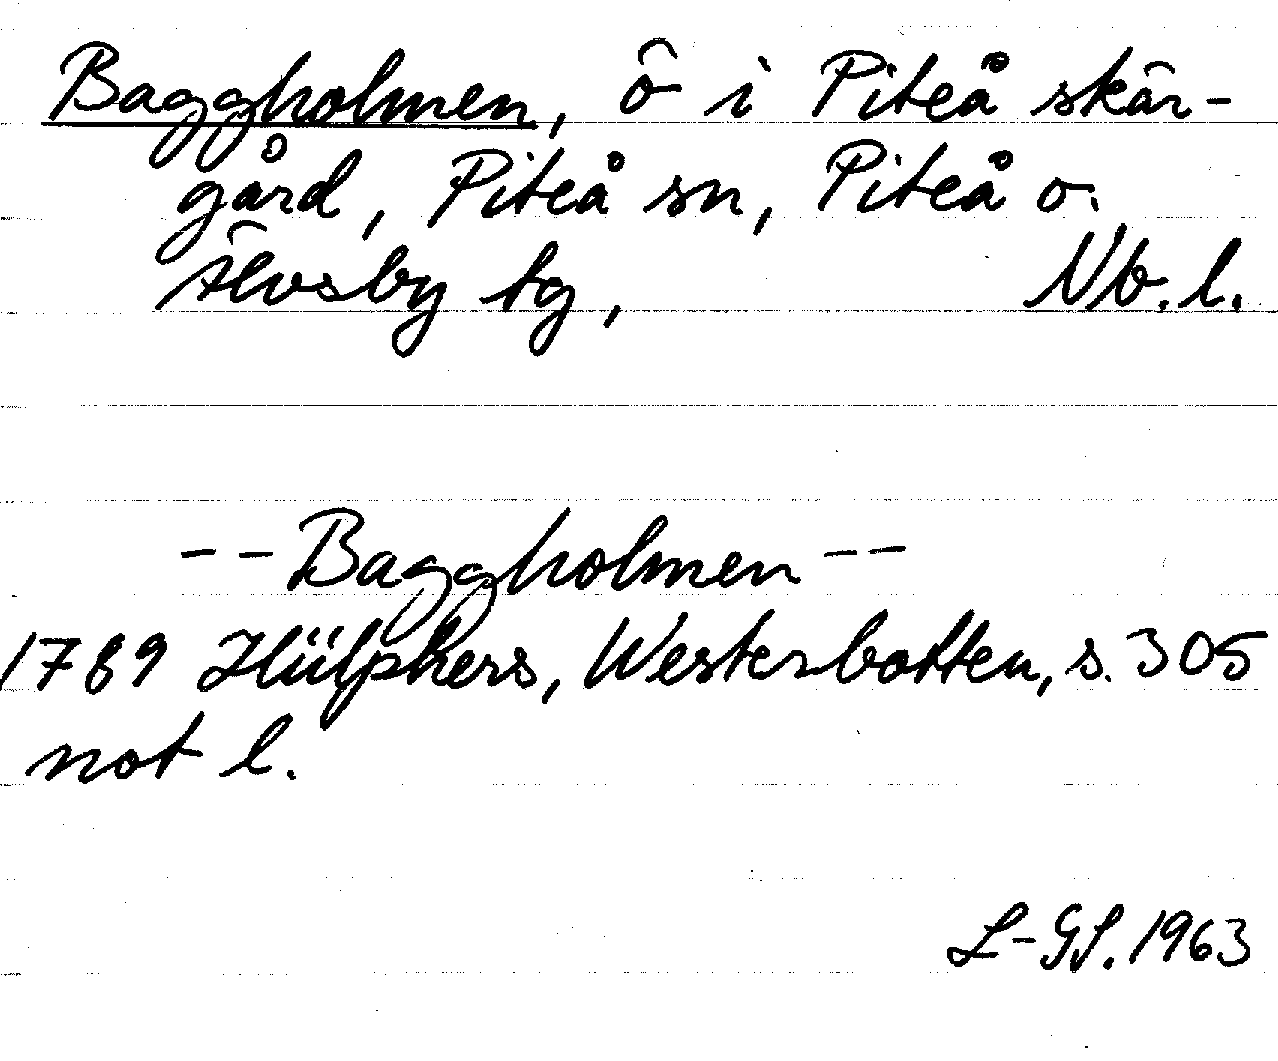 Baggholmen, ö i Piteå skär-
gård, Piteå sn, Piteå o.
Älvsby tg, Nb. l.
-- Baggholmen --
1789 Hülphers, Westerbotten, s. 305
not l.
L-GS. 1963